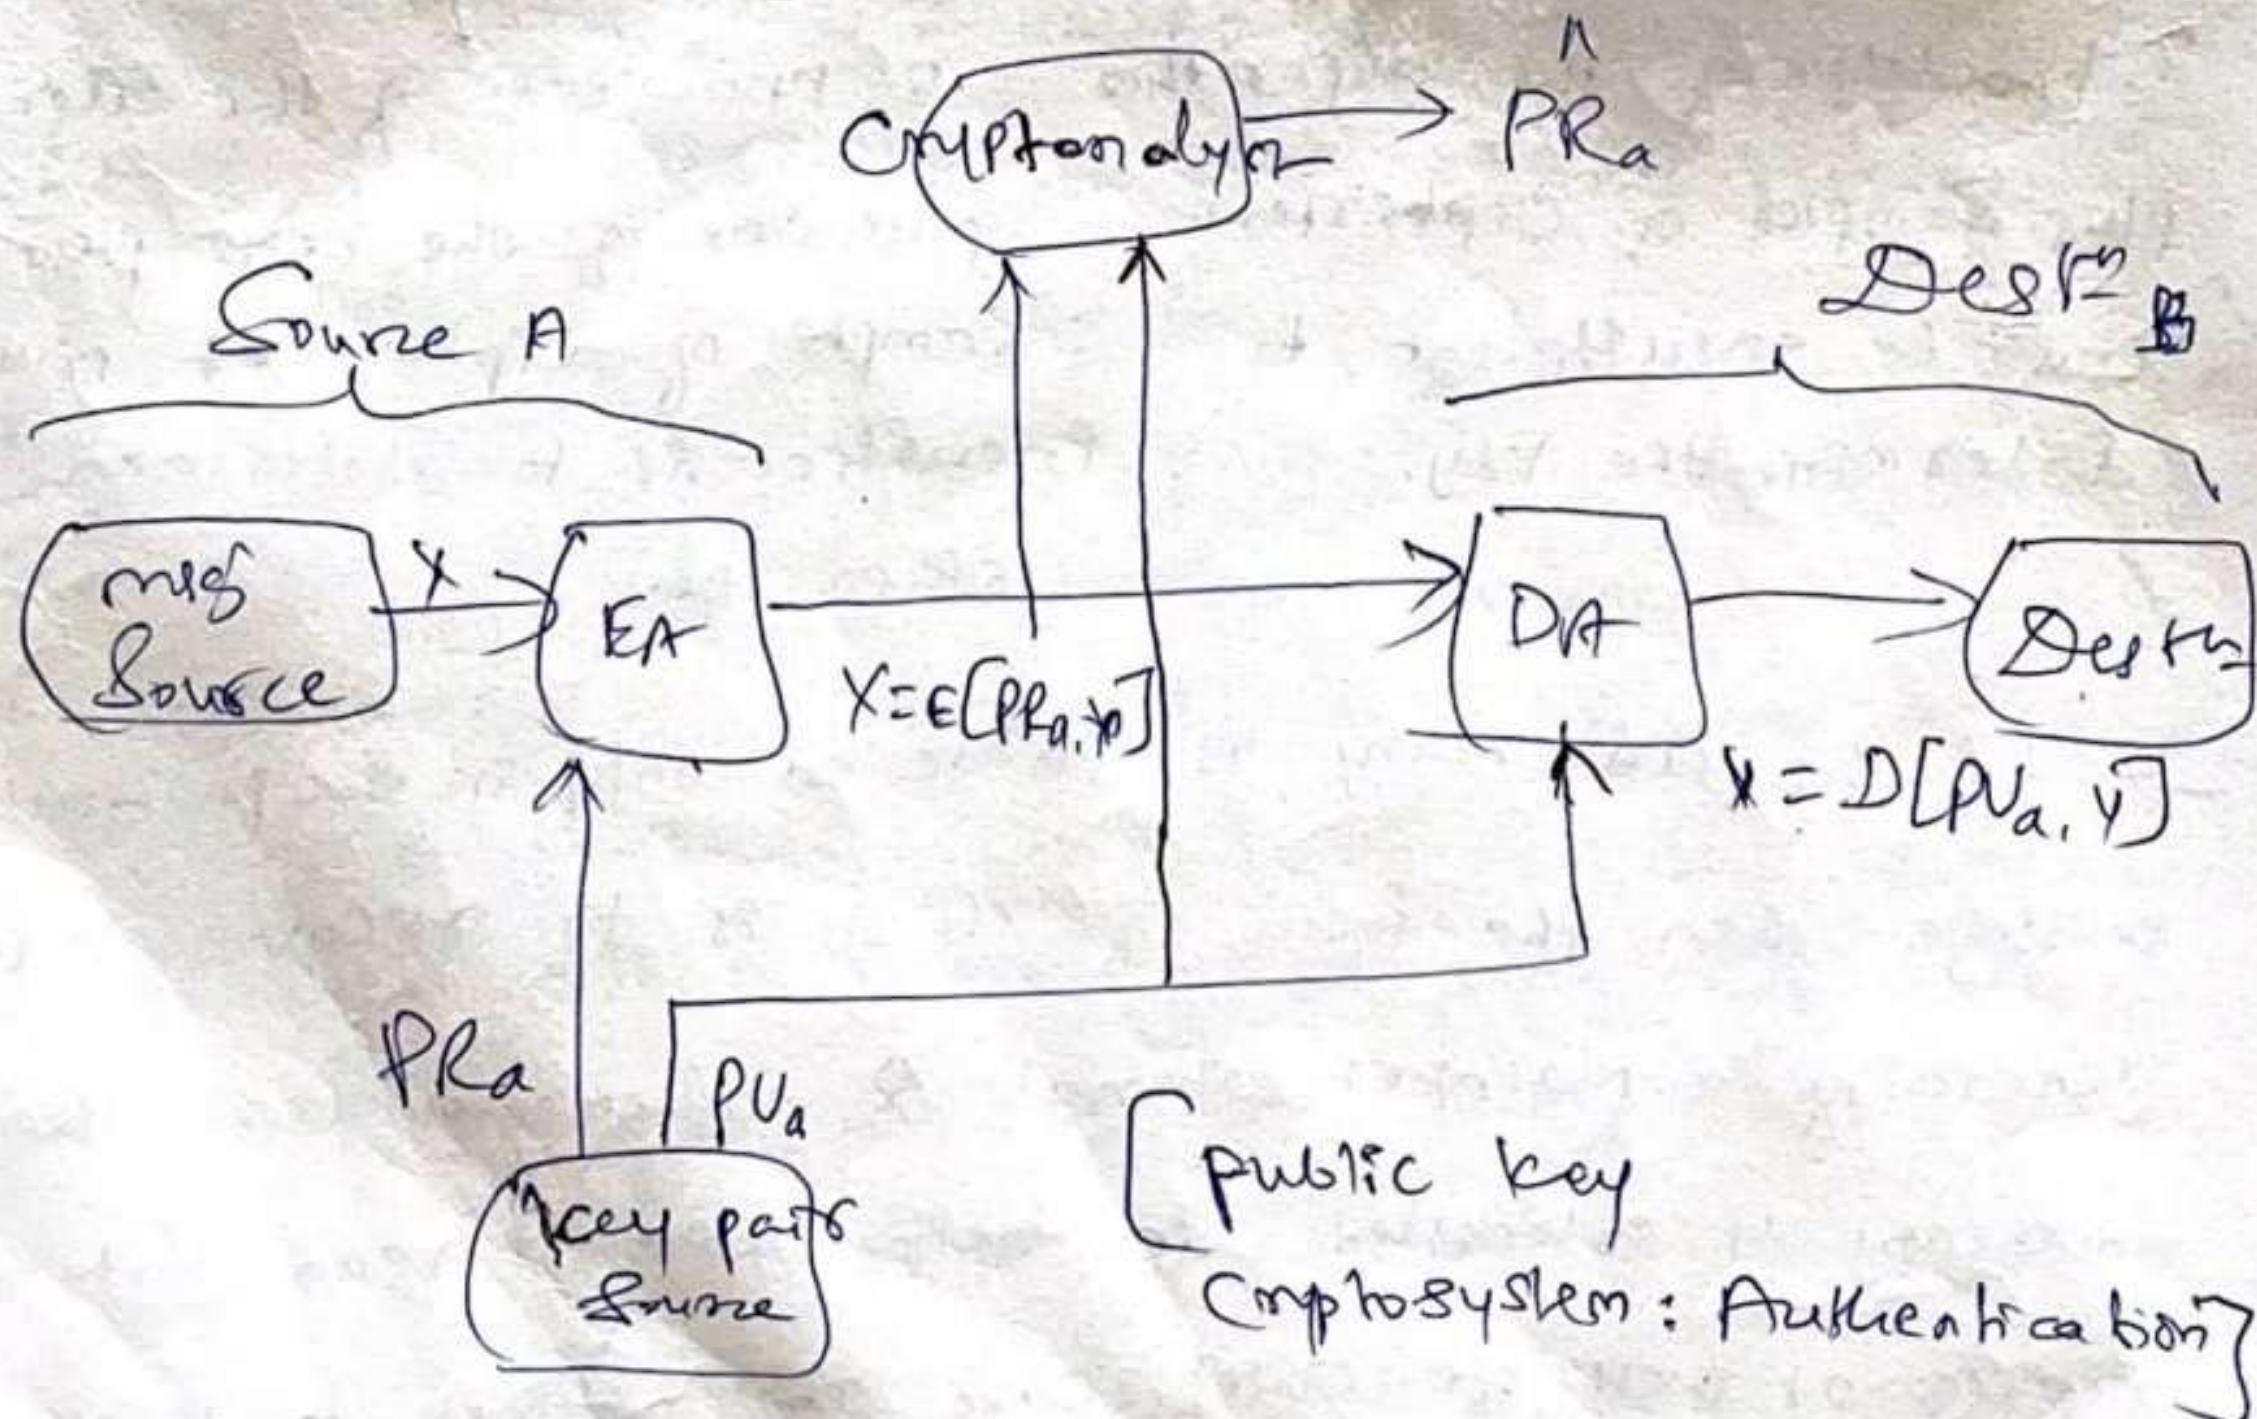 ^
Cryptanalyst
PRa
Source A
Destn B
msg
Source
X
EA
DA
Destn
Y=E[PRa, X]
X = D[PUa, Y]
PRa
PUa
key pair
Source
[public key
Cryptosystem: Authentication]